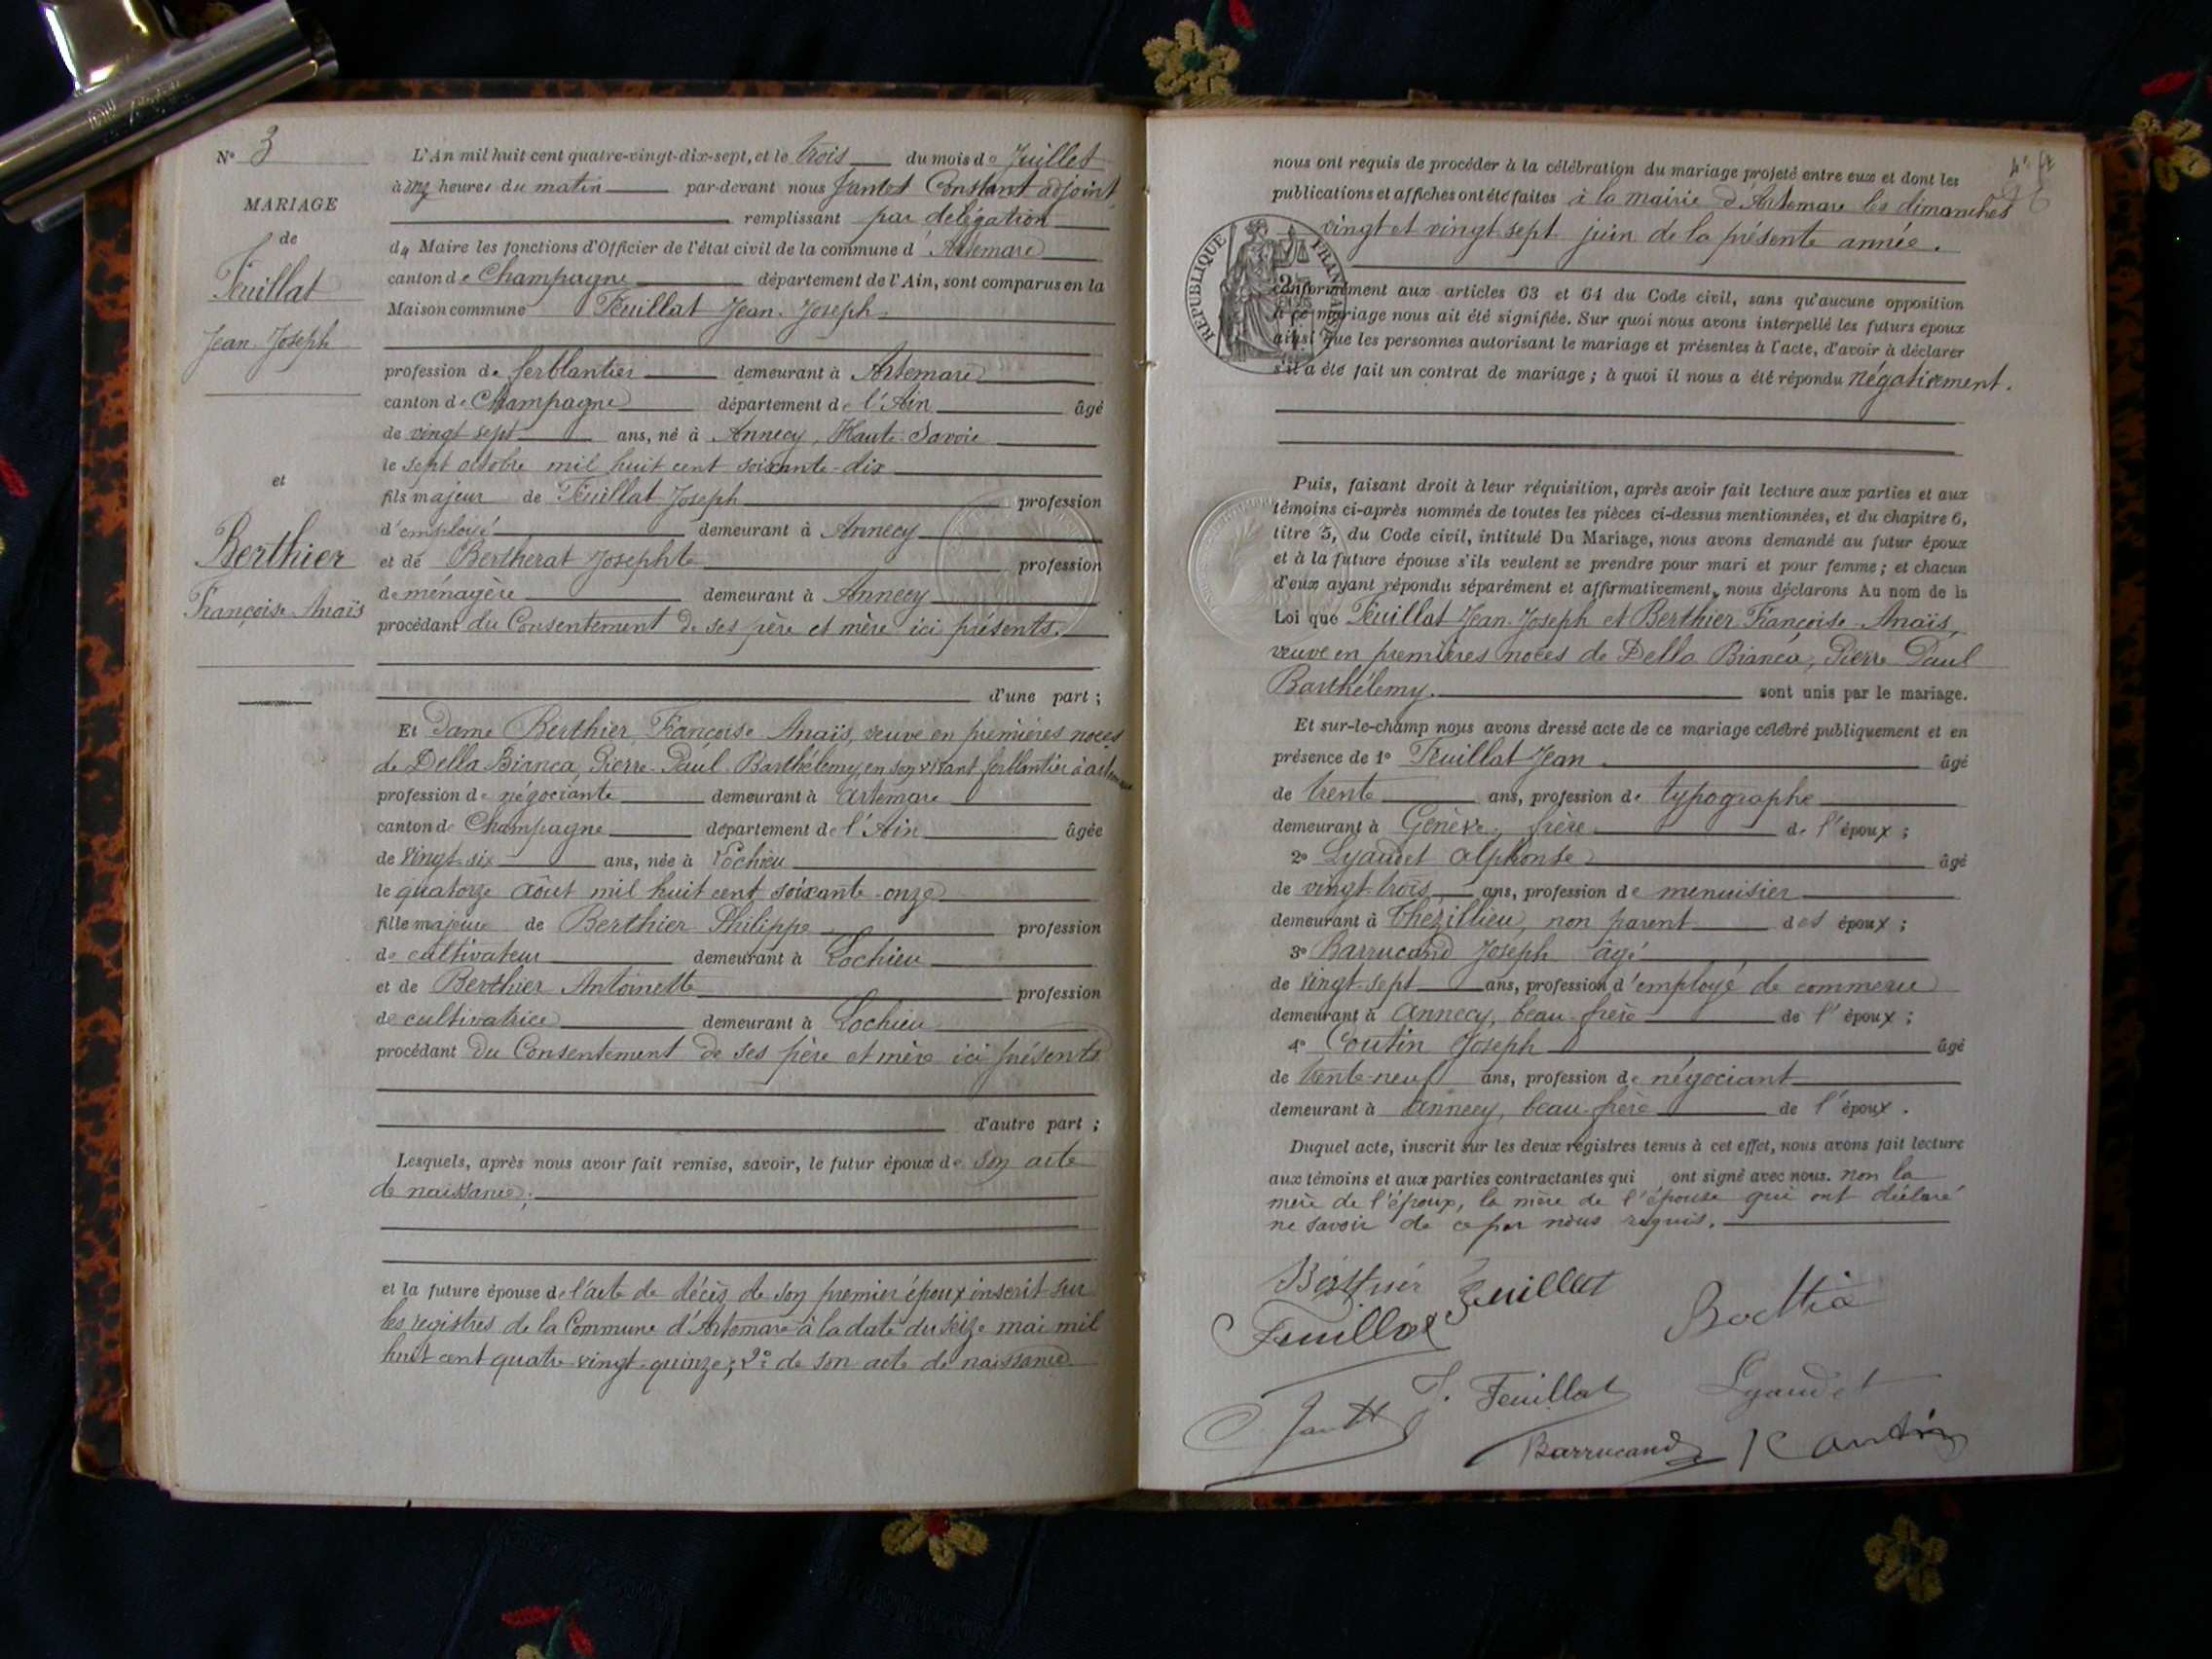 N° 3
MARIAGE
de
Feuillat
Jean-Joseph
et
Berthier
Françoise-Anaïs
L'An mil huit cent quatre-vingt-dix-sept, et le trois du mois de Juillet
à onze heures du matin par-devant nous Jantet Constant adjoint,
remplissant par délégation
du Maire les fonctions d'Officier de l'état civil de la commune d'Artemare
canton de Champagne département de l'Ain, sont comparus en la
Maison commune Feuillat Jean-Joseph
profession de ferblantier demeurant à Artemare
canton de Champagne département de l'Ain âgé
de vingt-sept ans, né à Annecy, Haute-Savoie
le sept octobre mil huit cent soixante-dix
fils majeur de Feuillat Joseph profession
d'employé demeurant à Annecy
et de Bertherat Josephte profession
de ménagère demeurant à Annecy
procédant du Consentement de ses père et mère ici présents.
d'une part ;
Et Dame Berthier, Françoise Anaïs, veuve en premières noces
de Della Bianca, Pierre-Paul-Barthélemy, en son vivant ferblantier à artemare
profession de négociante demeurant à artemare
canton de Champagne département de l'Ain âgée
de vingt-six ans, née à Lochieu
le quatorze août mil huit cent soixante-onze
fille majeure de Berthier Philippe profession
de cultivateur demeurant à Lochieu
et de Berthier Antoinette profession
de cultivatrice demeurant à Lochieu
procédant du Consentement de ses père et mère ici présents
d'autre part ;
Lesquels, après nous avoir fait remise, savoir, le futur époux de son acte
de naissance ;
et la future épouse de l'acte de décès de son premier époux inscrit sur
les registres de la Commune d'Artemare à la date du seize mai mil
huit cent quatre-vingt-quinze ; 2° de son acte de naissance
nous ont requis de procéder à la célébration du mariage projeté entre eux et dont les
publications et affiches ont été faites à la mairie d'Artemare les dimanches
vingt et vingt-sept juin de la présente année.
RÉPUBLIQUE FRANÇAISE
conformément aux articles 63 et 64 du Code civil, sans qu'aucune opposition
à ce mariage nous ait été signifiée. Sur quoi nous avons interpellé les futurs époux
ainsi que les personnes autorisant le mariage et présentes à l'acte, d'avoir à déclarer
s'il a été fait un contrat de mariage ; à quoi il nous a été répondu négativement.
Puis, faisant droit à leur réquisition, après avoir fait lecture aux parties et aux
témoins ci-après nommés de toutes les pièces ci-dessus mentionnées, et du chapitre 6,
titre 5, du Code civil, intitulé Du Mariage, nous avons demandé au futur époux
et à la future épouse s'ils veulent se prendre pour mari et pour femme ; et chacun
d'eux ayant répondu séparément et affirmativement, nous déclarons Au nom de la
Loi que Feuillat Jean-Joseph et Berthier Françoise-Anaïs,
veuve en premières noces de Della Bianca, Pierre Paul
Barthélemy. sont unis par le mariage.
Et sur-le-champ nous avons dressé acte de ce mariage célébré publiquement et en
présence de 1° Feuillat Jean âgé
de trente ans, profession de typographe
demeurant à Genève, frère de l'époux ;
2° Lyaudet alphonse âgé
de vingt-trois ans, profession de menuisier
demeurant à Thezillieu, non parent des époux ;
3° Barrucand Joseph âgé
de vingt-sept ans, profession d'employé de commerce
demeurant à Annecy, beau-frère de l'époux ;
4° Coutin Joseph âgé
de trente-neuf ans, profession de négociant
demeurant à Annecy, beau-frère de l'époux.
Duquel acte, inscrit sur les deux registres tenus à cet effet, nous avons fait lecture
aux témoins et aux parties contractantes qui ont signé avec nous. non la
mère de l'époux, la mère de l'épouse qui ont déclaré
ne savoir de ce par nous requis.
Berthier Feuillat
Feuillat
J. Feuillat Lyaudet
Barrucand